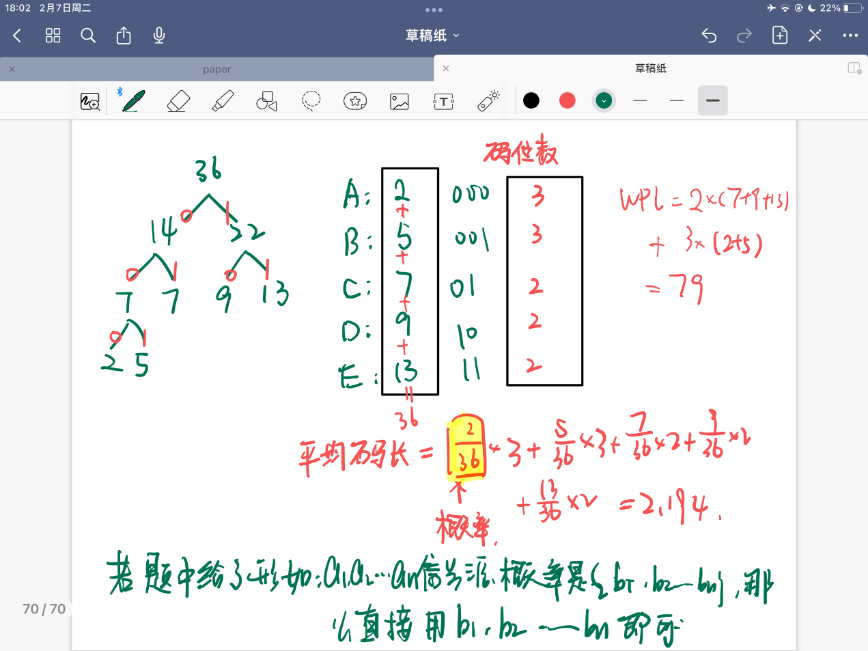 18:02 2月7日周二
22%
草稿纸
paper
草稿纸
码位数
36
0 1
14 22
0 1 0 1
7 7 9 13
0 1
2 5
A: 2 000 3
+
B: 5 001 3
+
C: 7 01 2
+
D: 9 10 2
+
E: 13 11 2
=
36
WPL = 2×(7+9+13)
+ 3×(2+5)
= 79
平均码长 = 2/36 × 3 + 5/36 ×3 + 7/36 ×2 + 9/36 ×2
+ 13/36 ×2 = 2.194.
↑
概率.
若题中给了形如:a1,a2…an信号源,概率是{b1,b2…bn},那
么直接用b1,b2…bn即可
70 / 70